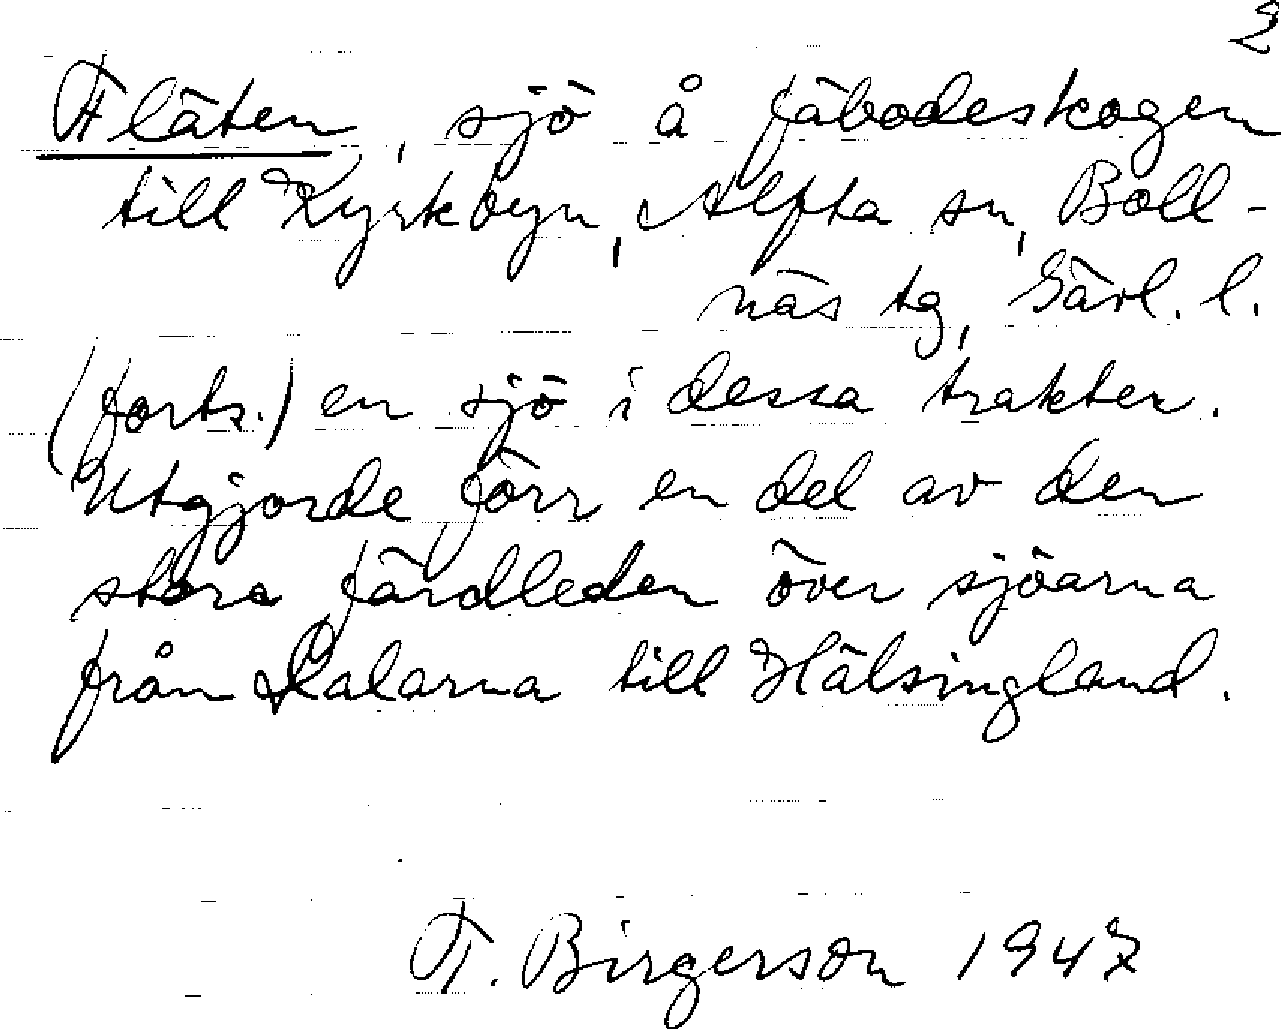 2
Fläten, sjö å fäbodeskogen
till Kyrkbyn, Alfta sn, Boll-
näs tg, Gävl. l.
(forts.) en sjö i dessa trakter.
Utgjorde förr en del av den
stora färdleden över sjöarna
från Dalarna till Hälsingland.
F. Birgerson 1947